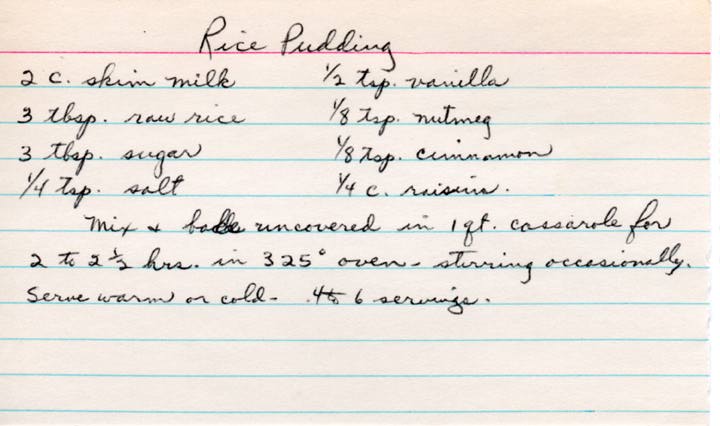 Rice Pudding
2 c. skim milk
3 tbsp. raw rice
3 tbsp. sugar
1/4 tsp. salt
1/2 tsp. vanilla
1/8 tsp. nutmeg
1/8 tsp. cinnamon
1/4 c. raisins.
Mix & bake uncovered in 1 qt. cassarole for
2 to 2 1/2 hrs. in 325° oven - stirring occasionally.
Serve warm or cold - 4 to 6 servings.